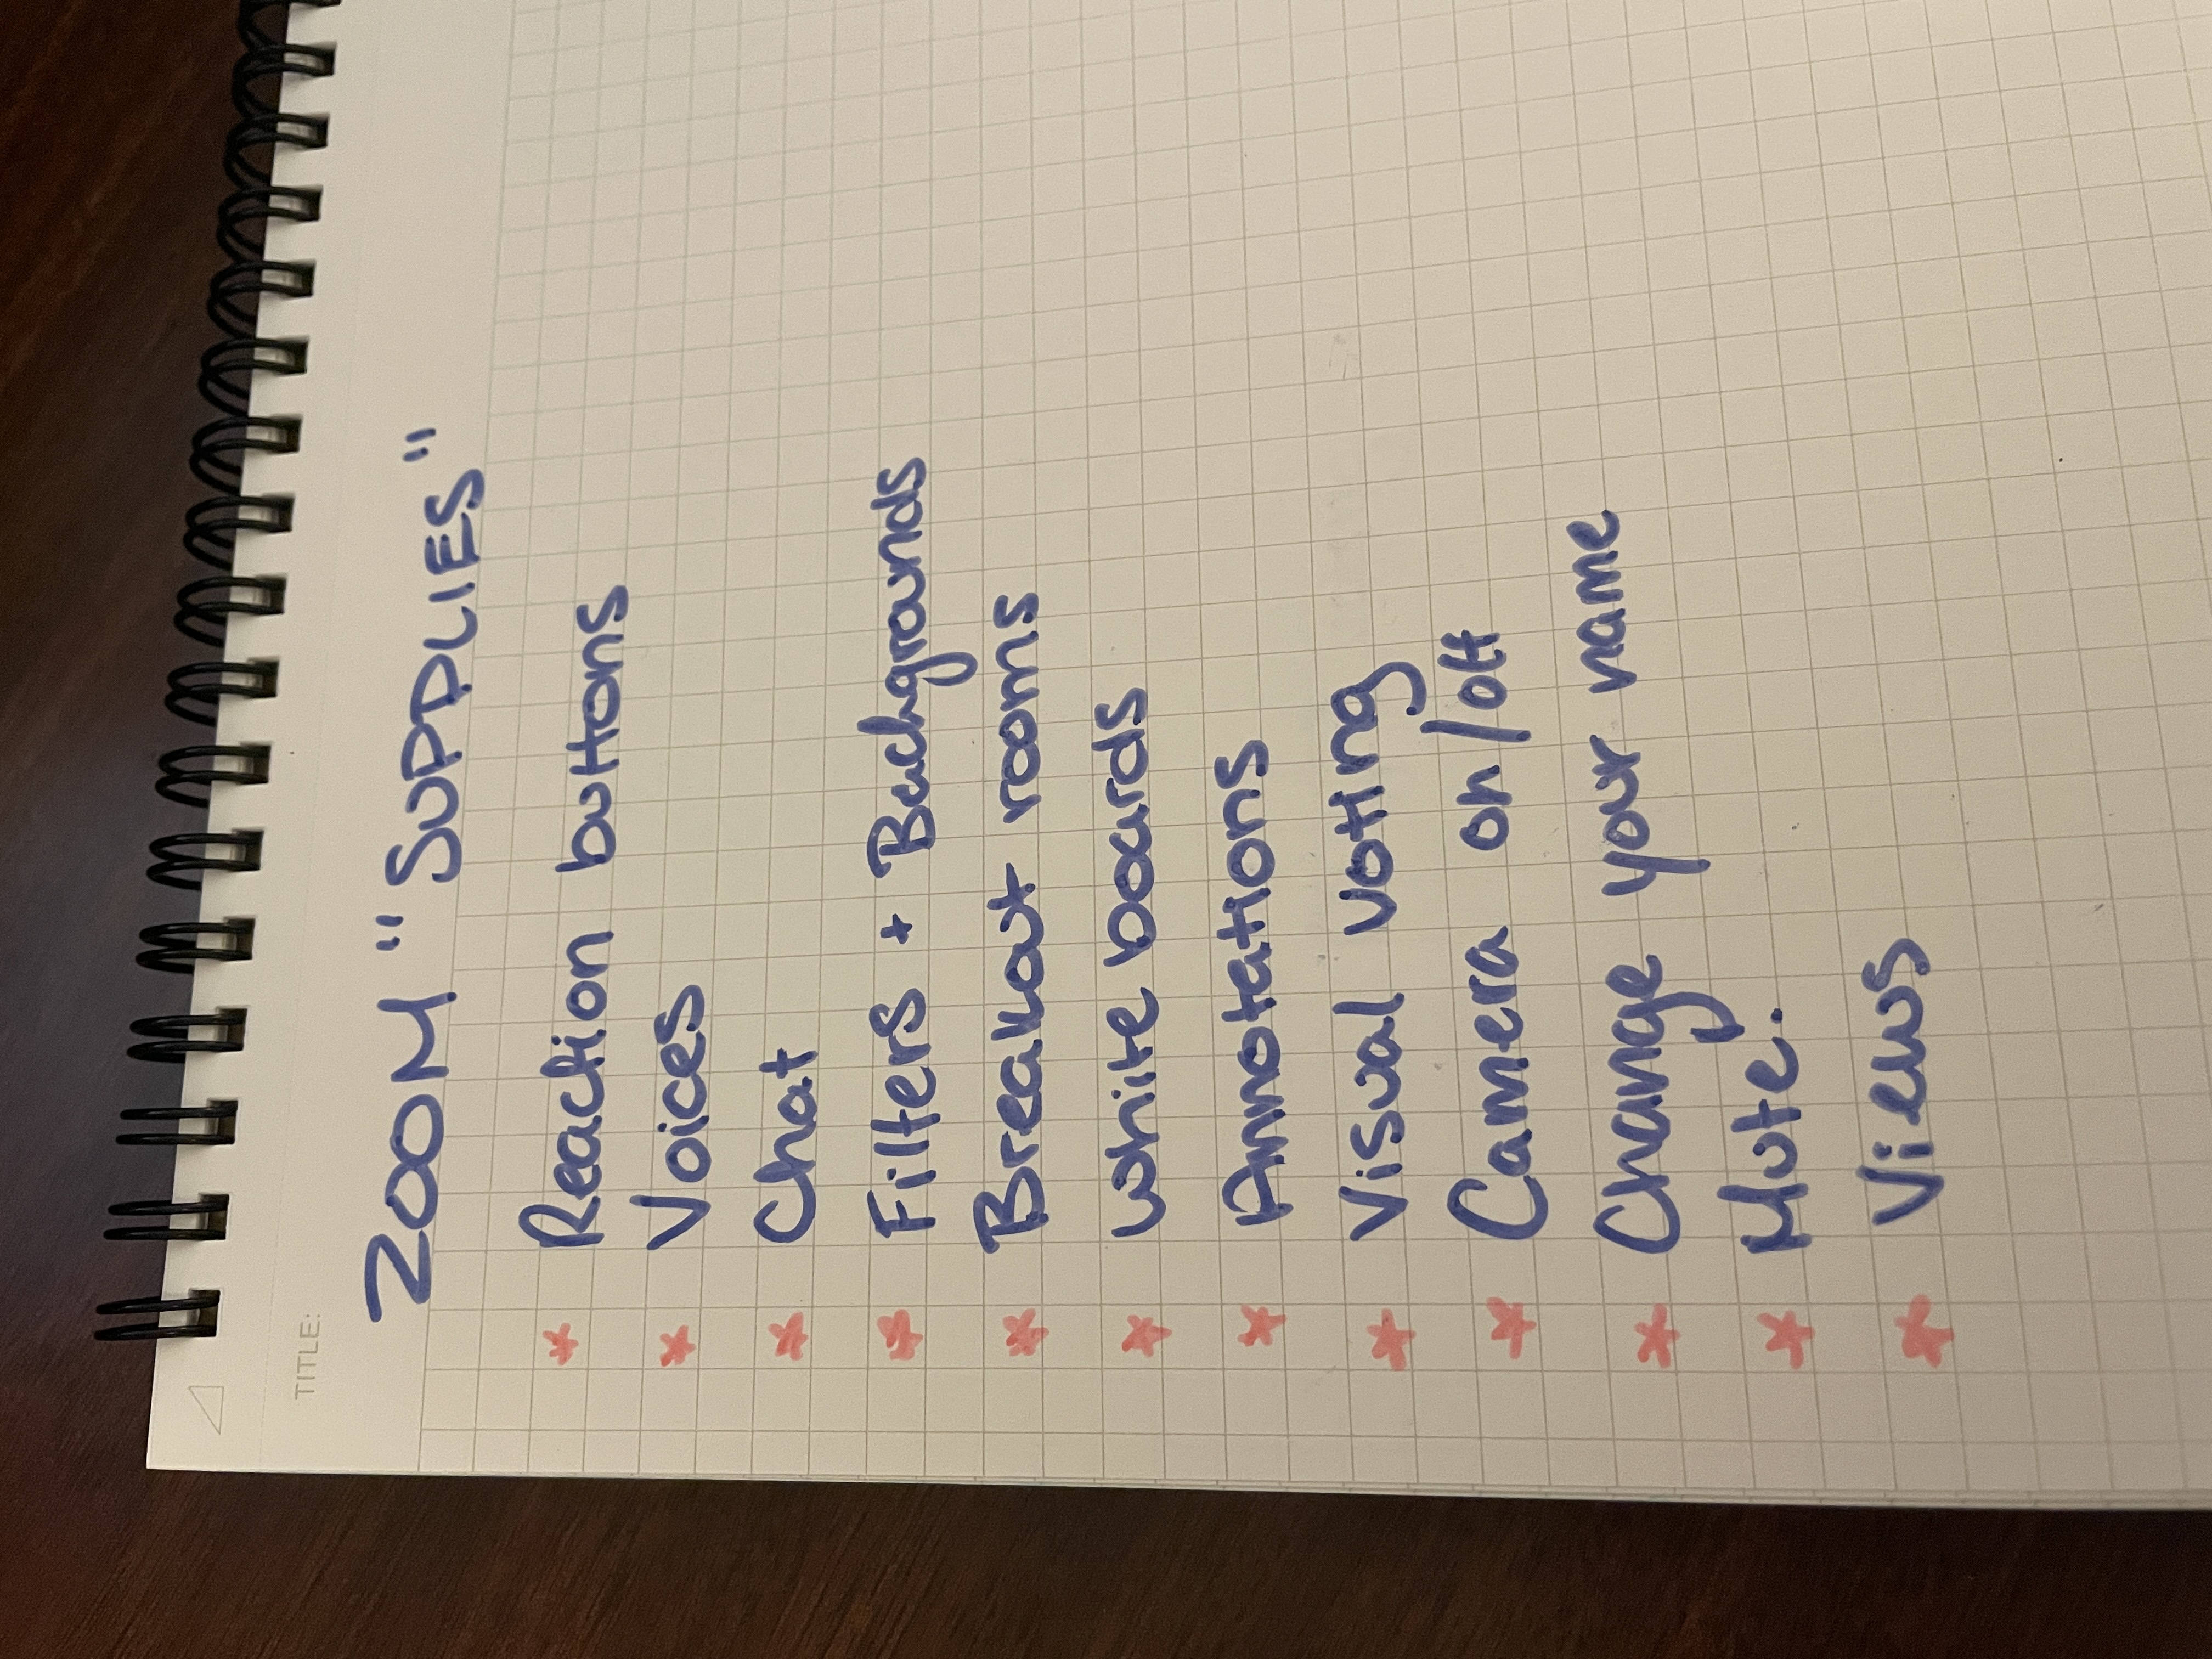 TITLE:
ZOOM "SUPPLIES"
* Reaction buttons
* Voices
* Chat
* Filters + Backgrounds
* Breakout rooms
* white boards
* Annotations
* Visual voting
* Camera on/off
* Change your name
* Mute.
* Views